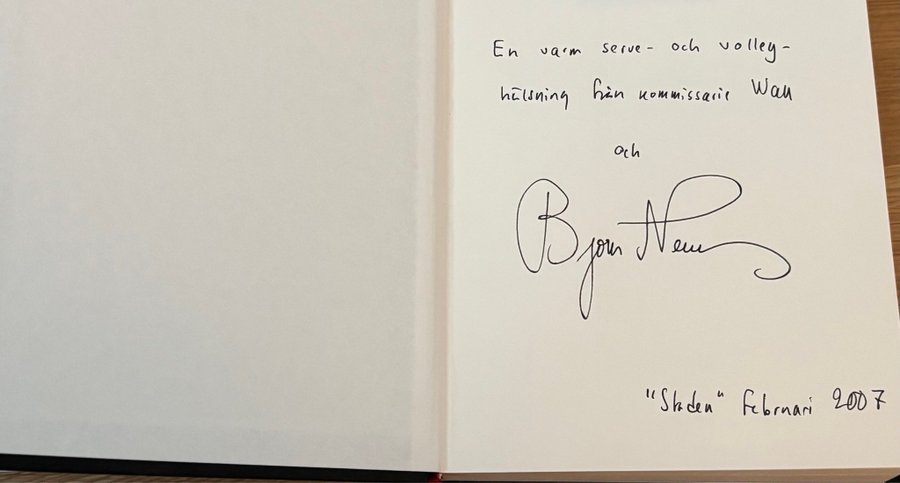 En varm serve- och volley-
hälsning från kommissarie Wall
och
Björn
"Staden" Februari 2007